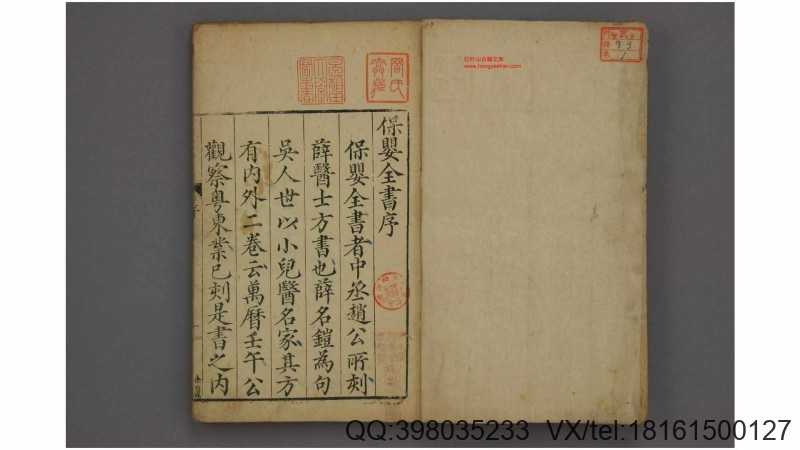 保嬰全書序
保嬰全書者中丞趙公所刻
薛醫士方書也薛名鎧為句
吳人世以小兒醫名家其方
有內外二卷云萬曆壬午公
觀察粵東業已刻是書之內
红叶山古籍文库
www.hongyeshan.com
QQ:398035233 VX/tel:18161500127